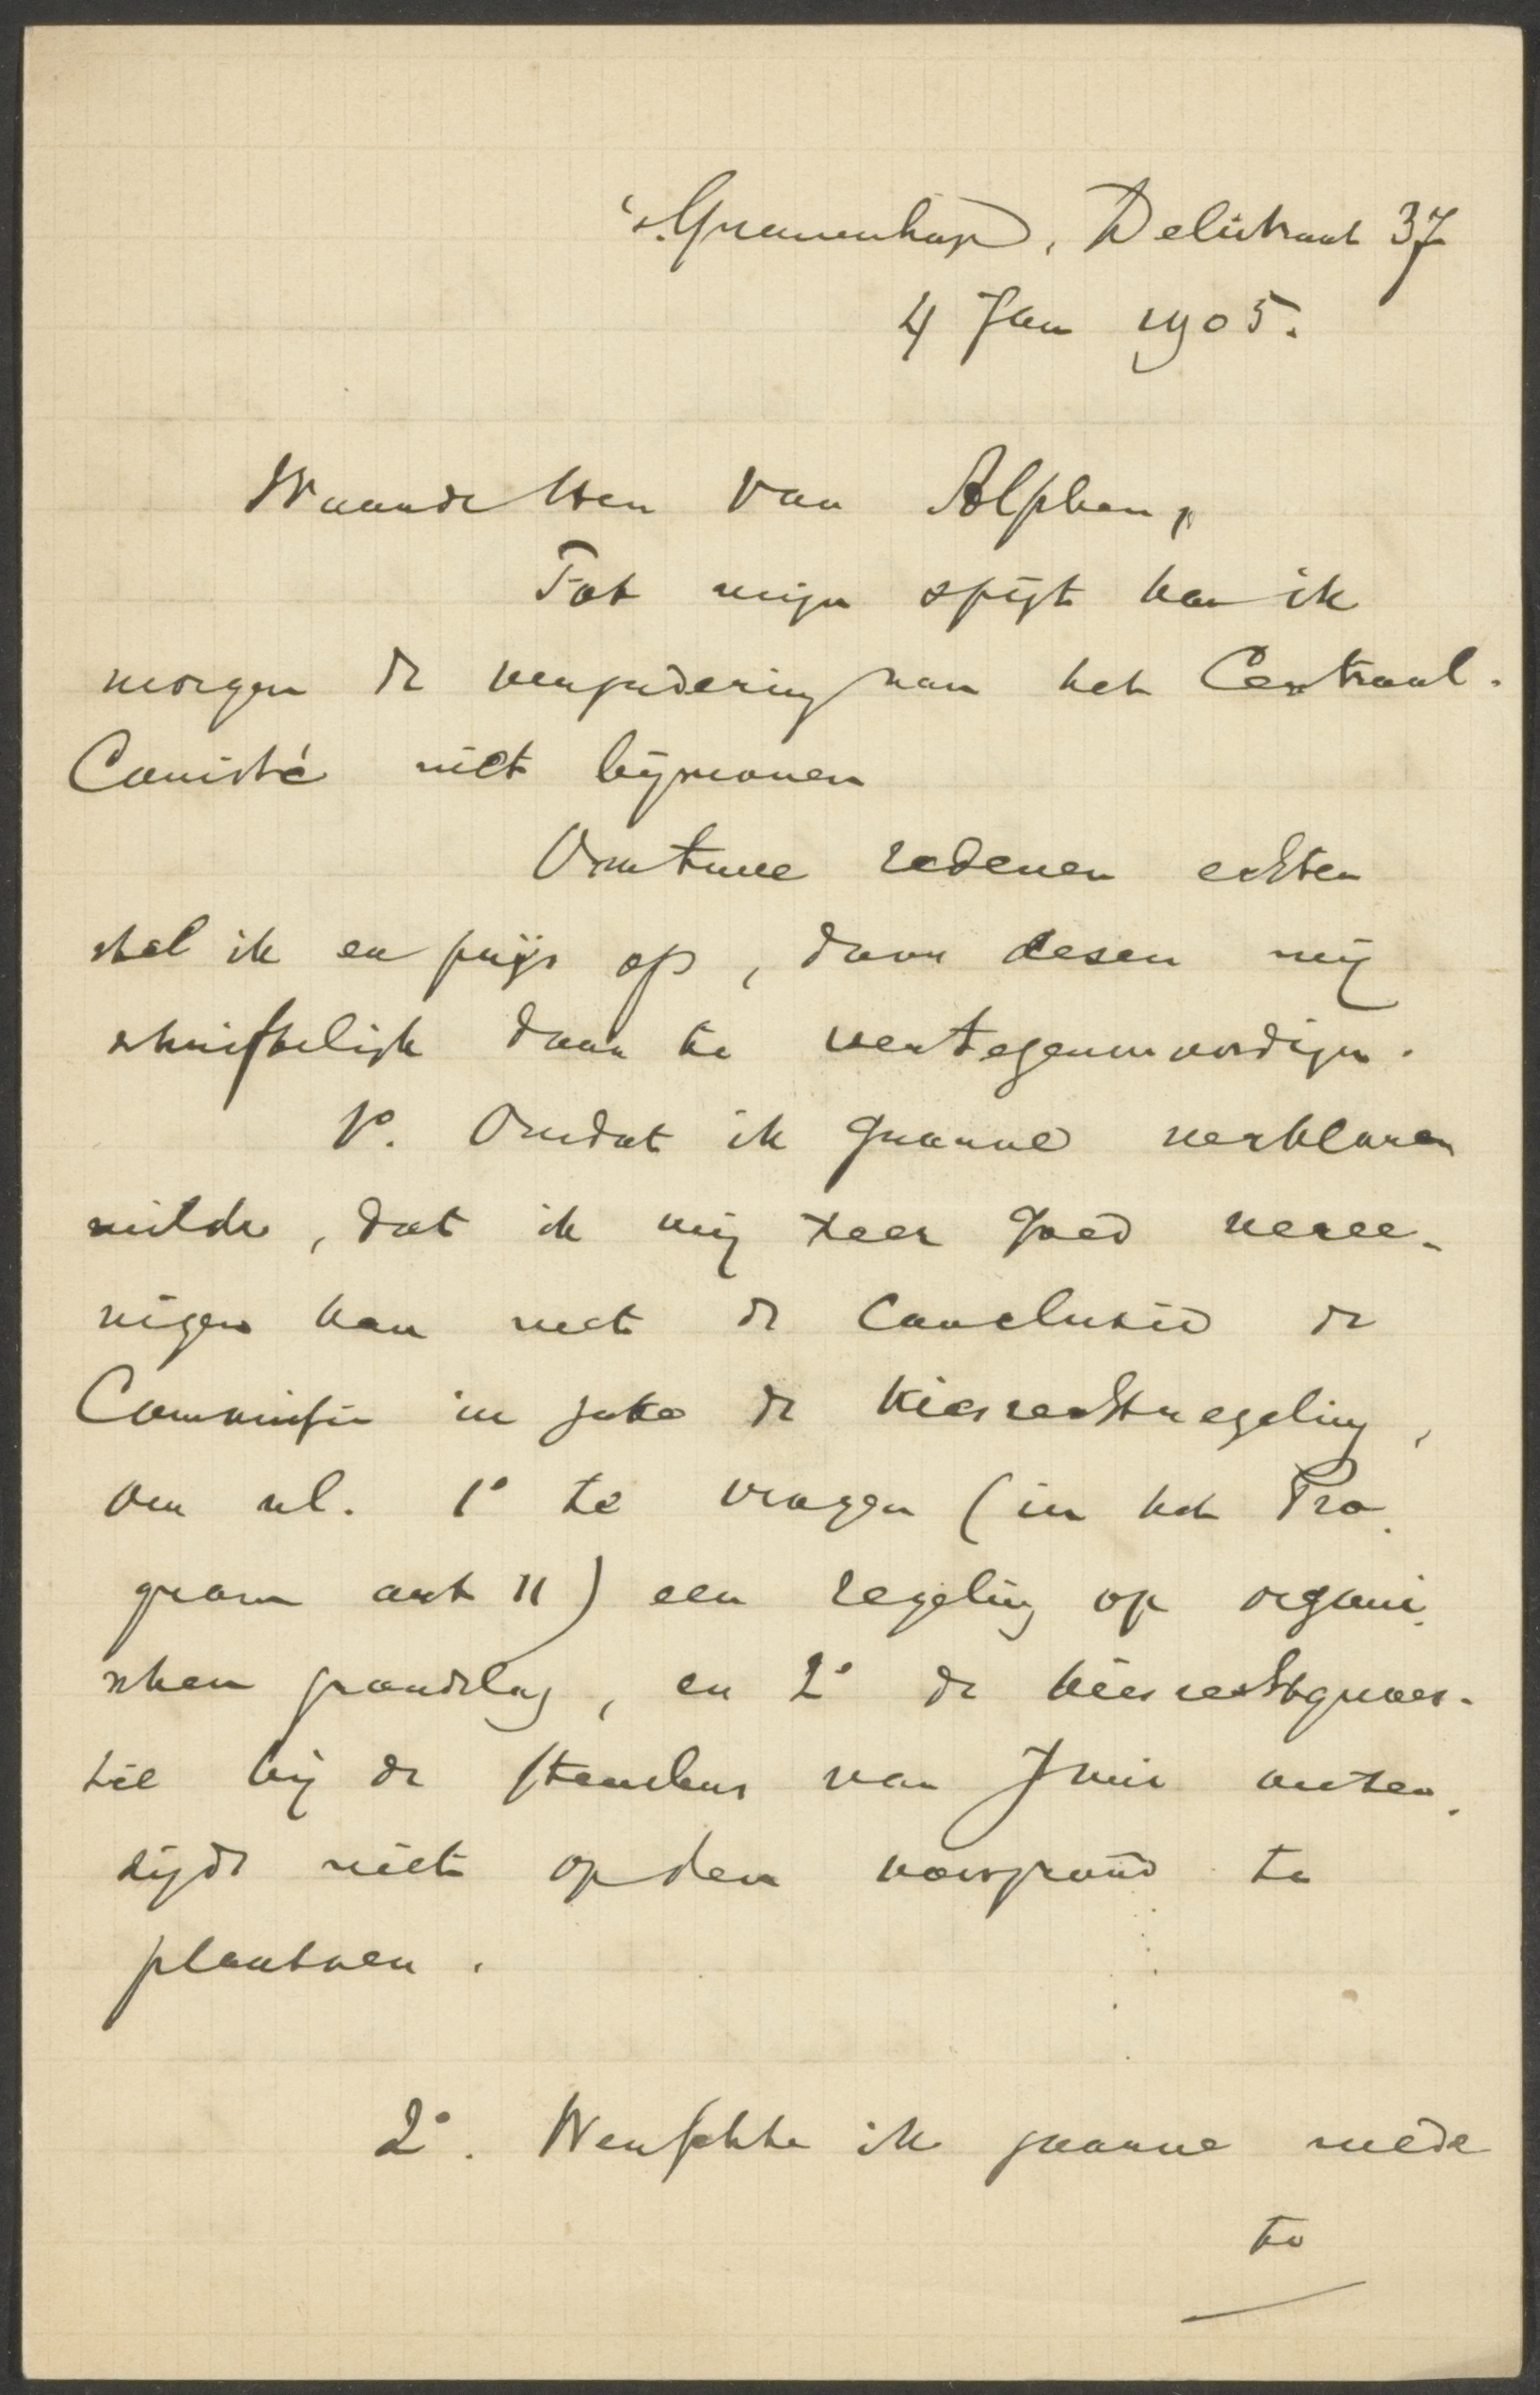 's Gravenhage, Delistraat 37
4 Jan 1905.
Waarde Heer van Alphen,
Tot mijn spijt kan ik
morgen de vergadering van het Centraal-
Comité niet bijwonen
Om twee redenen echter
stel ik er prijs op, door dezen mij
schriftelijk daar te vertegenwoordigen.
1°. Omdat ik gaarne verklaren
wilde, dat ik mij zeer goed veree-
nigen kan met de conclusie der
Commissie in zake de kiesrechtregeling,
om nl. 1° te vragen (in het Pro-
gram art 11) een regeling op organi-
schen grondslag, en 2° de kiesrechtquaes-
tie bij de stembus van Juni onzer-
zijds niet op den voorgrond te
plaatsen.
2°. Wenschte ik gaarne mede
te